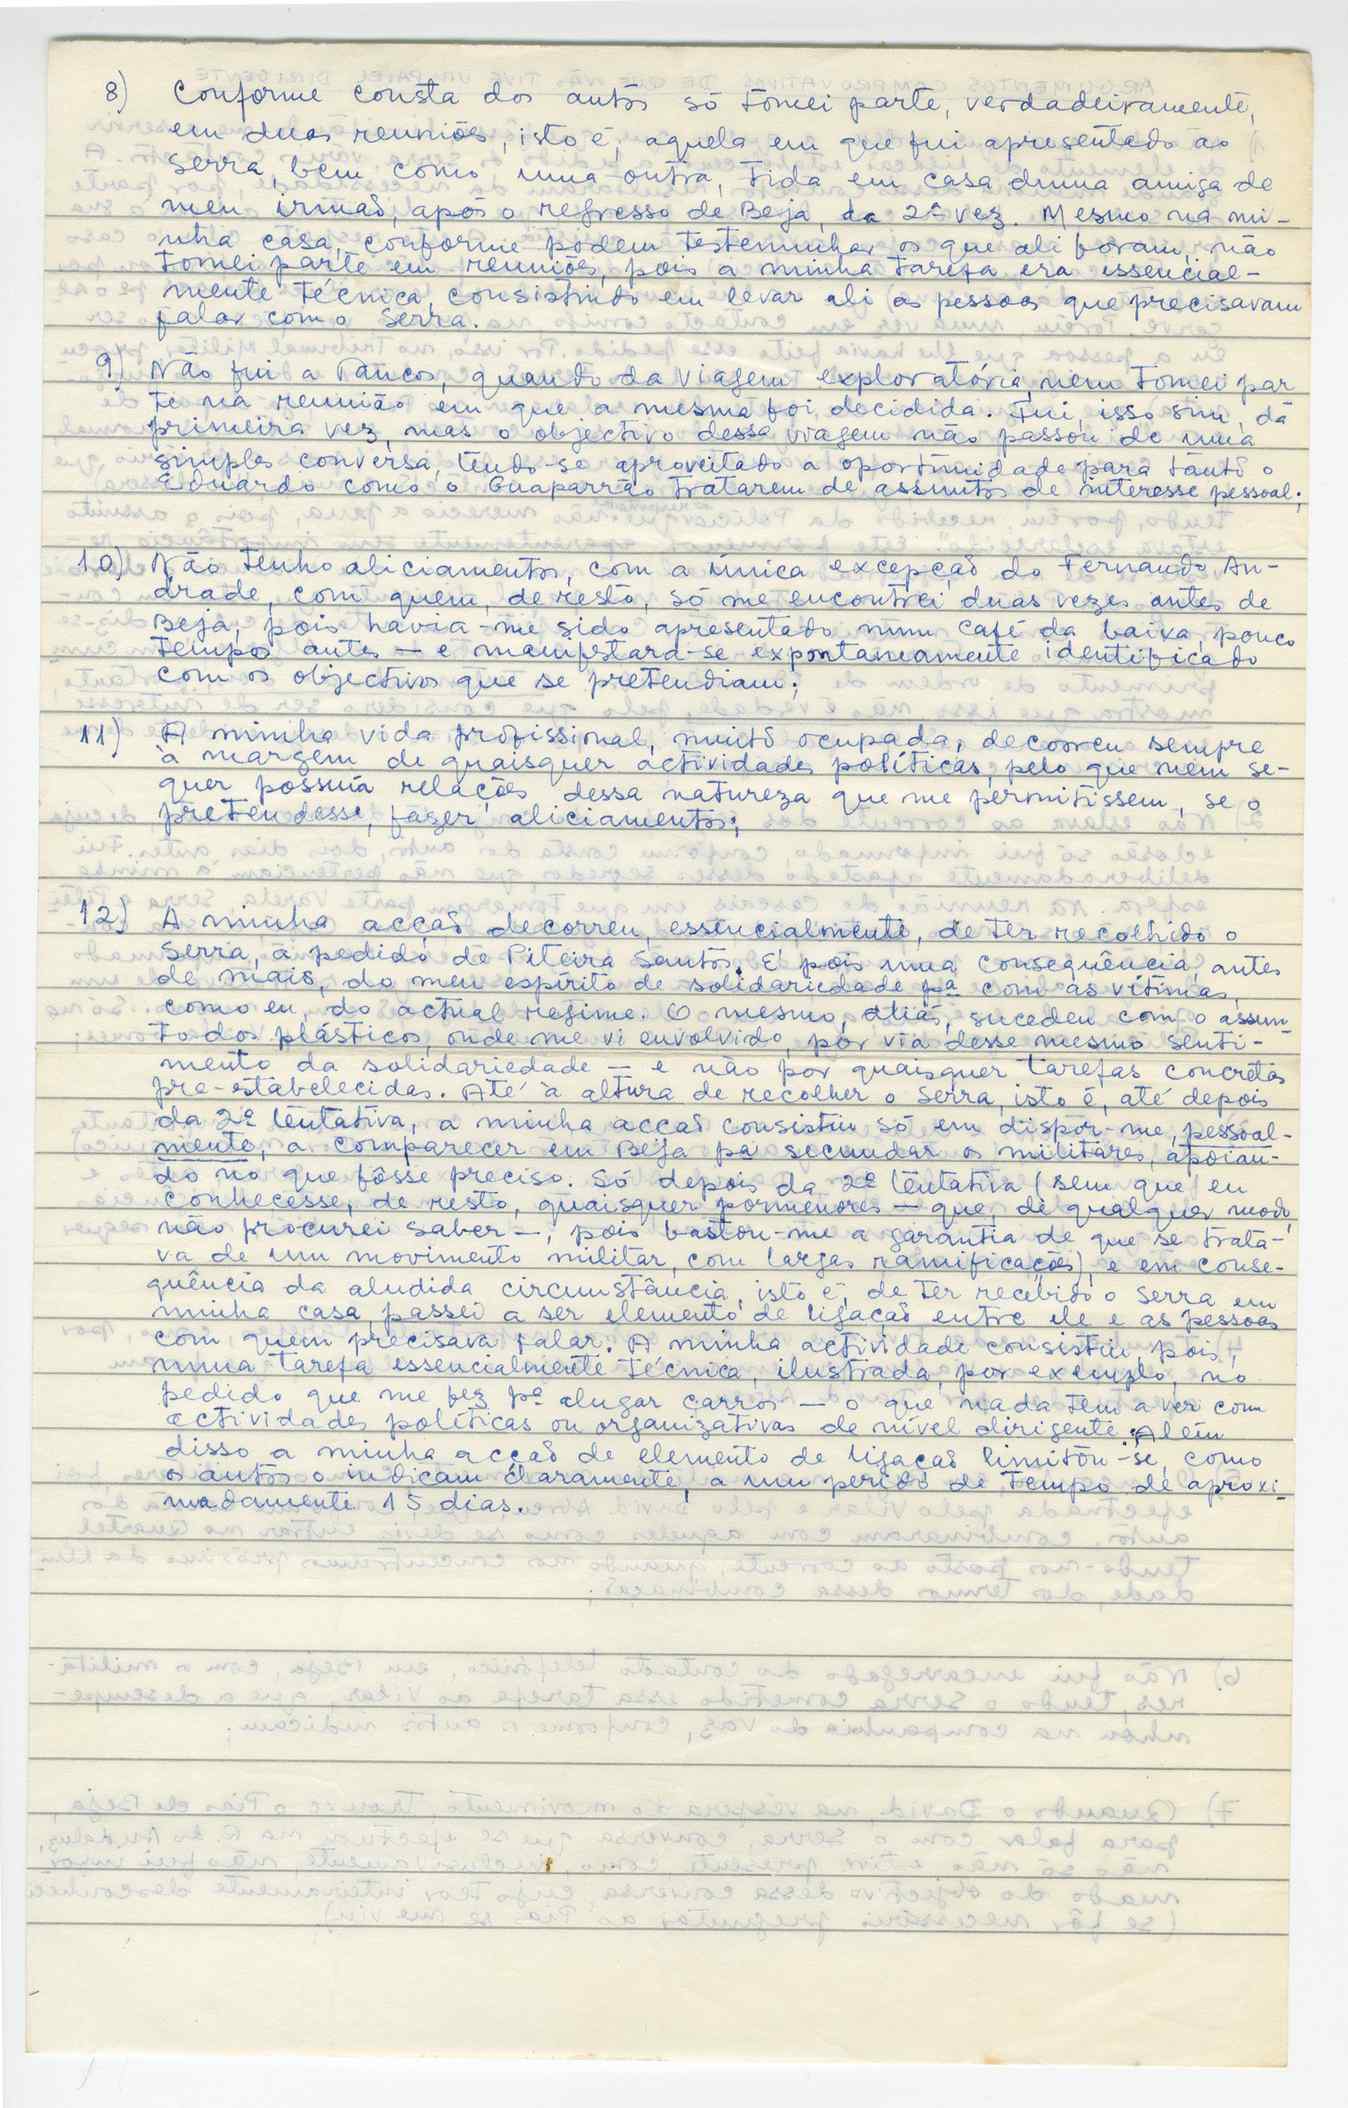 8) Conforme consta dos autos só tomei parte, verdadeiramente,
em duas reuniões, isto é, aquela em que fui apresentado ao
Serra, bem como uma outra, tida em casa duma amiga de
meu irmão, após o regresso de Beja, da 2ª vez. Mesmo na mi-
nha casa, conforme podem testemunhar os que ali foram, não
tomei parte em reuniões, pois a minha tarefa era essencial-
mente técnica, consistindo em levar ali as pessoas que precisavam
falar com o Serra.
9) Não fui a Tancos, quando da viagem exploratória, nem tomei par
te na reunião em que a mesma foi decidida. Fui, isso sim, da
primeira vez, mas o objectivo dessa viagem não passou de uma
simples conversa, tendo-se aproveitado a oportunidade para tanto o
Eduardo como o Guaparrão tratarem de assuntos de interesse pessoal;
10) Não tenho aliciamentos, com a única excepção do Fernando An-
drade, com quem, de resto, só me encontrei duas vezes antes de
Beja, pois havia-me sido apresentado num café da baixa, pouco
tempo antes — e manifestara-se expontaneamente identificado
com os objectivos que se pretendiam;
11) A minha vida profissional, muito ocupada, decorreu sempre
à margem de quaisquer actividades políticas, pelo que nem se-
quer possuía relações dessa natureza que me permitissem, se o
pretendesse, fazer aliciamentos;
12) A minha acção decorreu, essencialmente, de ter recolhido o
Serra, a pedido de Piteira Santos. É pois uma consequência, antes
de mais, do meu espírito de solidariedade pª com as vítimas,
como eu, do actual regime. O mesmo, aliás, sucedeu com o assun-
to dos plásticos, onde me vi envolvido, por via desse mesmo senti-
mento da solidariedade — e não por quaisquer tarefas concretas
pre-estabelecidas. Até à altura de recolher o Serra, isto é, até depois
da 2ª tentativa, a minha acção consistiu só em dispôr-me, pessoal-
mente, a comparecer em Beja pª secundar os militares, apoian-
do no que fôsse preciso. Só depois da 2ª tentativa (sem que eu
conhecesse, de resto, quaisquer pormenores — que, de qualquer modo,
não procurei saber —, pois bastou-me a garantia de que se trata-
va de um movimento militar, com largas ramificações), e em conse-
quência da aludida circunstância, isto é, de ter recebido o Serra em
minha casa, passei a ser elemento de ligação entre ele e as pessoas
com quem precisava falar. A minha actividade consistiu pois,
numa tarefa essencialmente técnica, ilustrada, por exemplo, no
pedido que me fez pª alugar carros — o que nada tem a ver com
actividades políticas ou organizativas de nível dirigente. Além
disso a minha acção de elemento de ligação limitou-se, como
os autos o indicam claramente, a um período de tempo de aproxi-
madamente 15 dias.